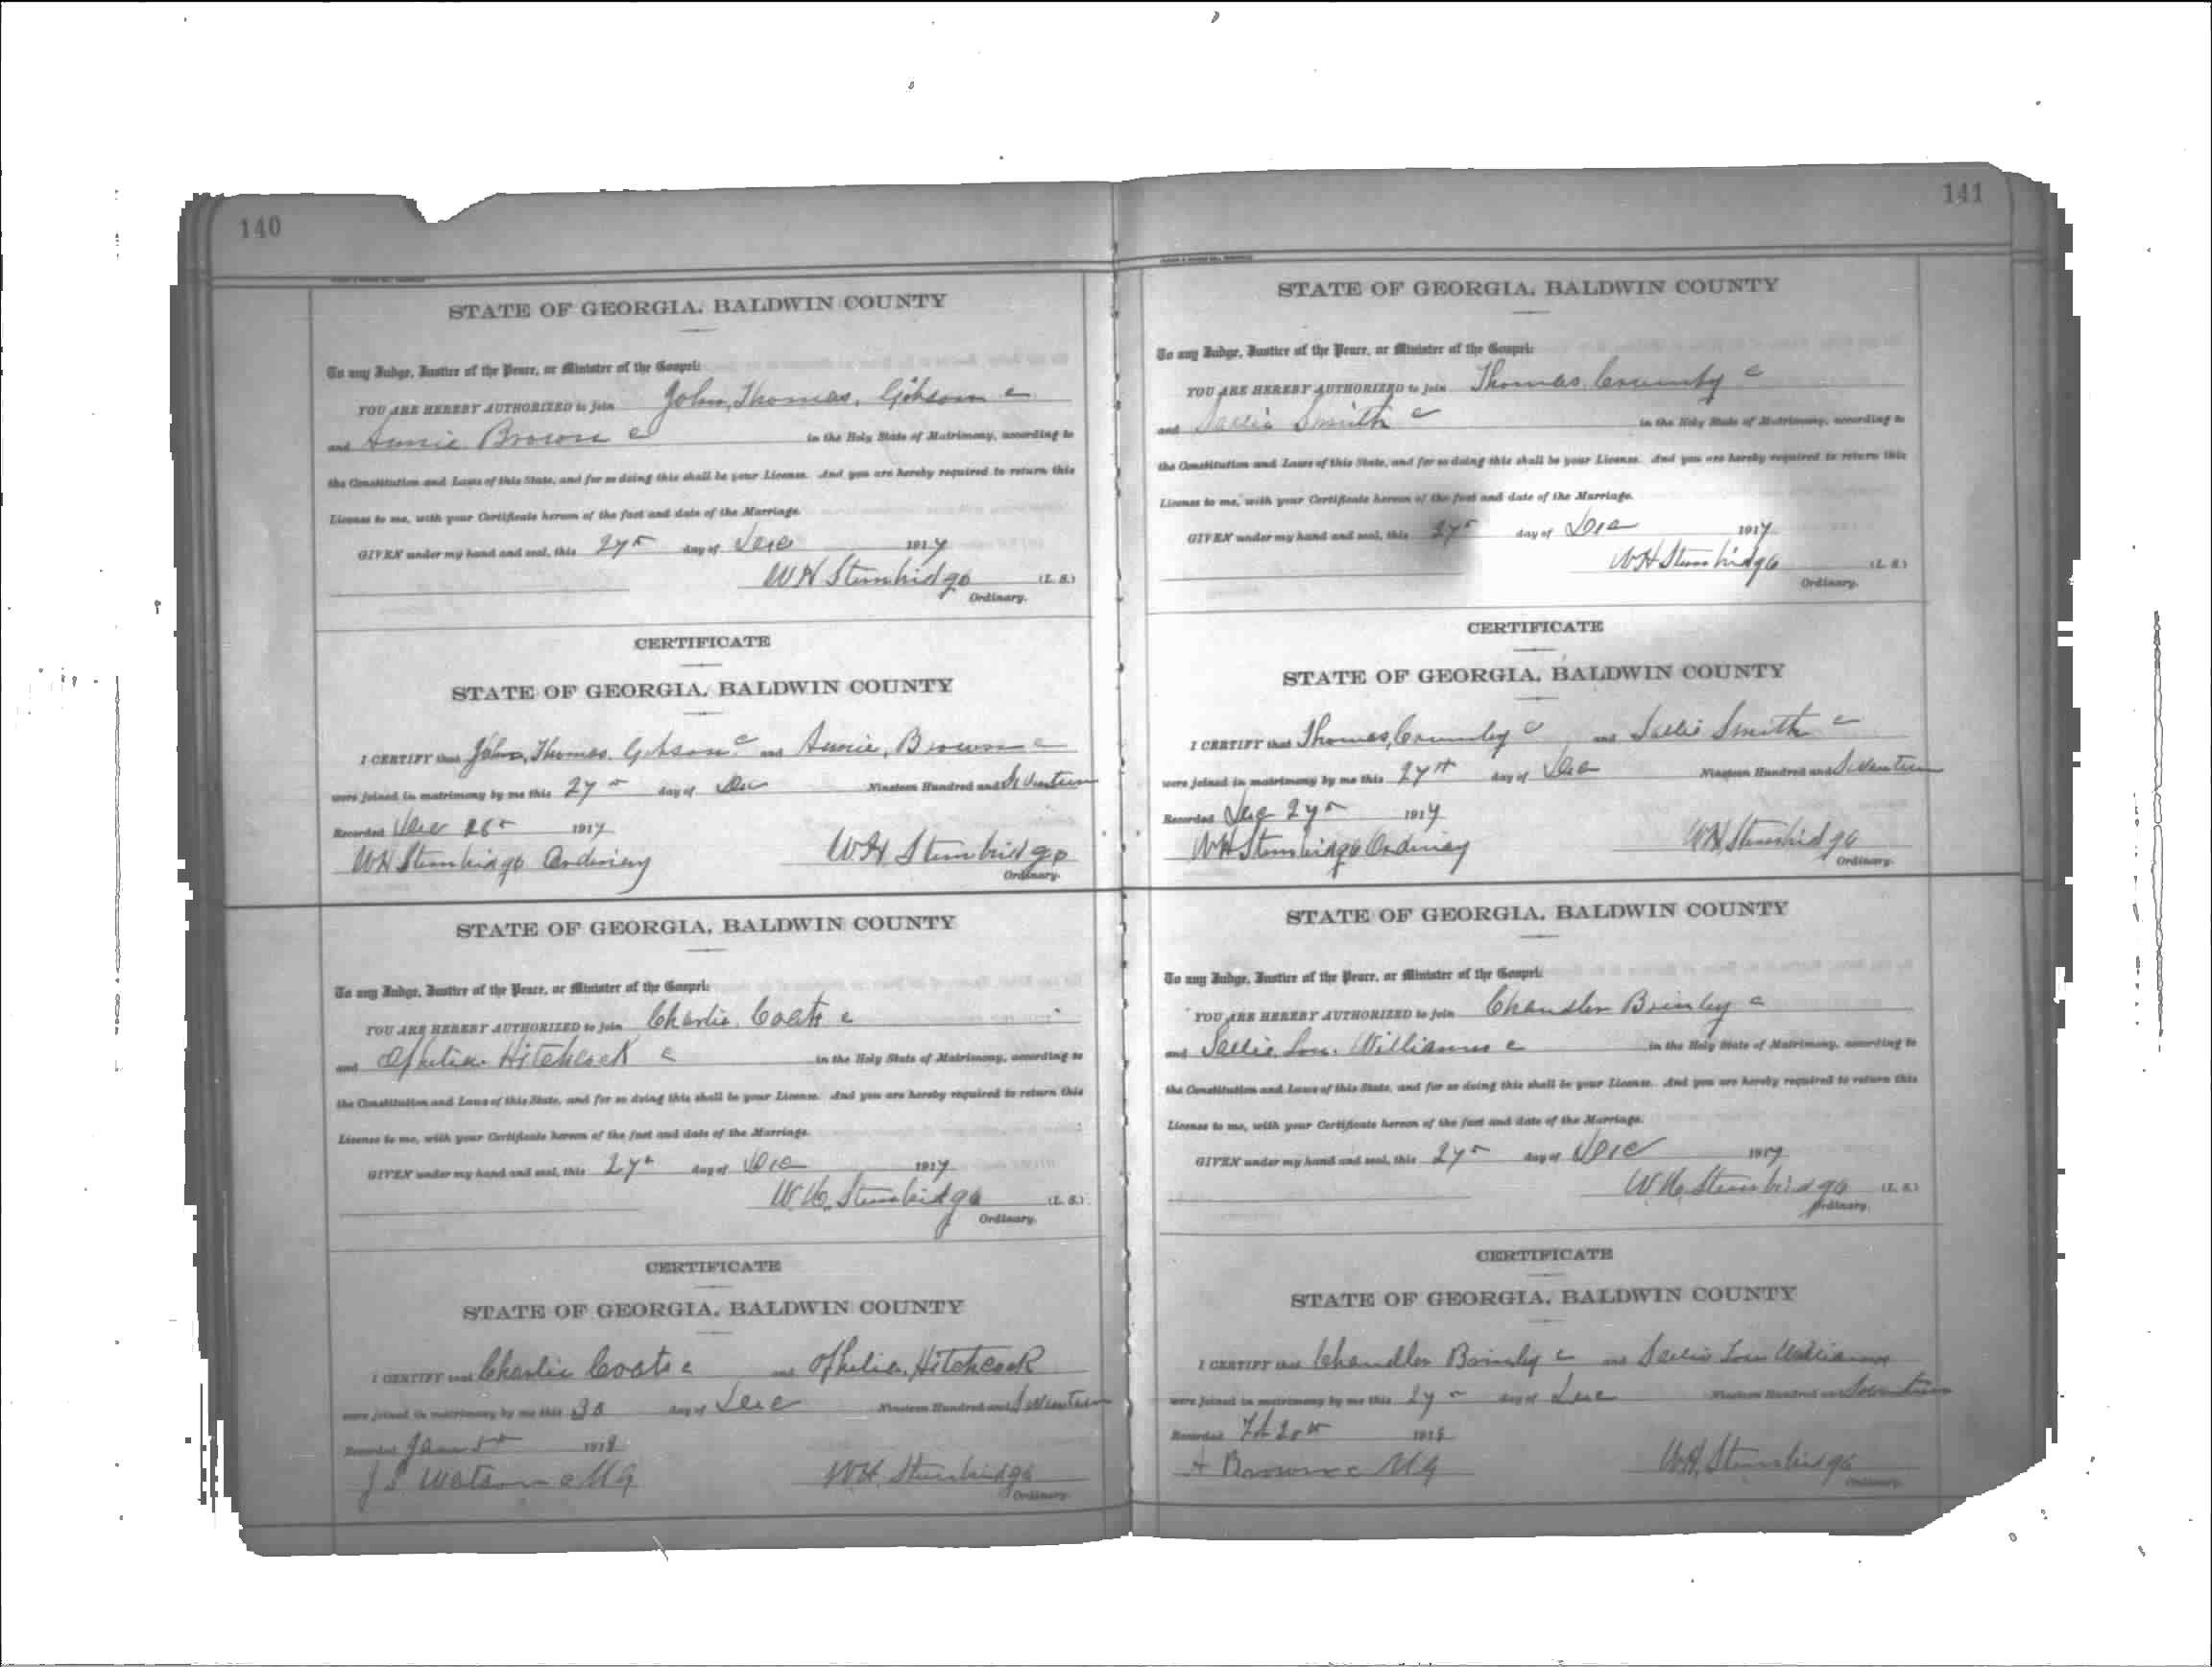 140
STATE OF GEORGIA, BALDWIN COUNTY
To any Judge, Justice of the Peace, or Minister of the Gospel:
YOU ARE HEREBY AUTHORIZED to join John, Thomas, Gibson c
and Annie Brown c in the Holy State of Matrimony, according to
the Constitution and Laws of this State, and for so doing this shall be your License. And you are hereby required to return this
License to me, with your Certificate hereon of the fact and date of the Marriage.
GIVEN under my hand and seal, this 27th day of Dec 1917
WH Stembridge (L. S.)
Ordinary.
CERTIFICATE
STATE OF GEORGIA, BALDWIN COUNTY
I CERTIFY that John, Thomas, Gibson c and Annie, Brown c
were joined in matrimony by me this 27th day of Dec Nineteen Hundred and Seventeen
Recorded Dec 1917
WH Stembridge Ordinary WH Stembridge
Ordinary.
STATE OF GEORGIA, BALDWIN COUNTY
To any Judge, Justice of the Peace, or Minister of the Gospel:
YOU ARE HEREBY AUTHORIZED to join Charlie Coats c
and Ophelia Hitchcock c in the Holy State of Matrimony, according to
the Constitution and Laws of this State, and for so doing this shall be your License. And you are hereby required to return this
License to me, with your Certificate hereon of the fact and date of the Marriage.
GIVEN under my hand and seal, this 27th day of Dec 1917
W.H. Stembridge (L. S.)
Ordinary.
CERTIFICATE
STATE OF GEORGIA, BALDWIN COUNTY
I CERTIFY that Charlie Coats c and Ophelia, Hitchcock
were joined in matrimony by me this 30 day of Dec Nineteen Hundred and Seventeen
Recorded Jan 1918
J S Watson c MG WH Stembridge
Ordinary.
141
STATE OF GEORGIA, BALDWIN COUNTY
To any Judge, Justice of the Peace, or Minister of the Gospel:
YOU ARE HEREBY AUTHORIZED to join Thomas, Crumbly c
and Sallie Smith c in the Holy State of Matrimony, according to
the Constitution and Laws of this State, and for so doing this shall be your License. And you are hereby required to return this
License to me, with your Certificate hereon of the fact and date of the Marriage.
GIVEN under my hand and seal, this 27th day of Dec 1917
WH Stembridge (L. S.)
Ordinary.
CERTIFICATE
STATE OF GEORGIA, BALDWIN COUNTY
I CERTIFY that Thomas, Crumbly c and Sallie Smith c
were joined in matrimony by me this 27th day of Dec Nineteen Hundred and Seventeen
Recorded Dec 27th 1917
WH Stembridge Ordinary WH Stembridge
Ordinary.
STATE OF GEORGIA, BALDWIN COUNTY
To any Judge, Justice of the Peace, or Minister of the Gospel:
YOU ARE HEREBY AUTHORIZED to join Chandler Brinley c
and Sallie Lou Williams c in the Holy State of Matrimony, according to
the Constitution and Laws of this State, and for so doing this shall be your License. And you are hereby required to return this
License to me, with your Certificate hereon of the fact and date of the Marriage.
GIVEN under my hand and seal, this 27th day of Dec 1917
W.H. Stembridge (L. S.)
Ordinary.
CERTIFICATE
STATE OF GEORGIA, BALDWIN COUNTY
I CERTIFY that Chandler Brinley c and Sallie Lou Williams
were joined in matrimony by me this 27 day of Dec Nineteen Hundred and Seventeen
Recorded Feb 20th 1918
Brown c MG WH Stembridge
Ordinary.